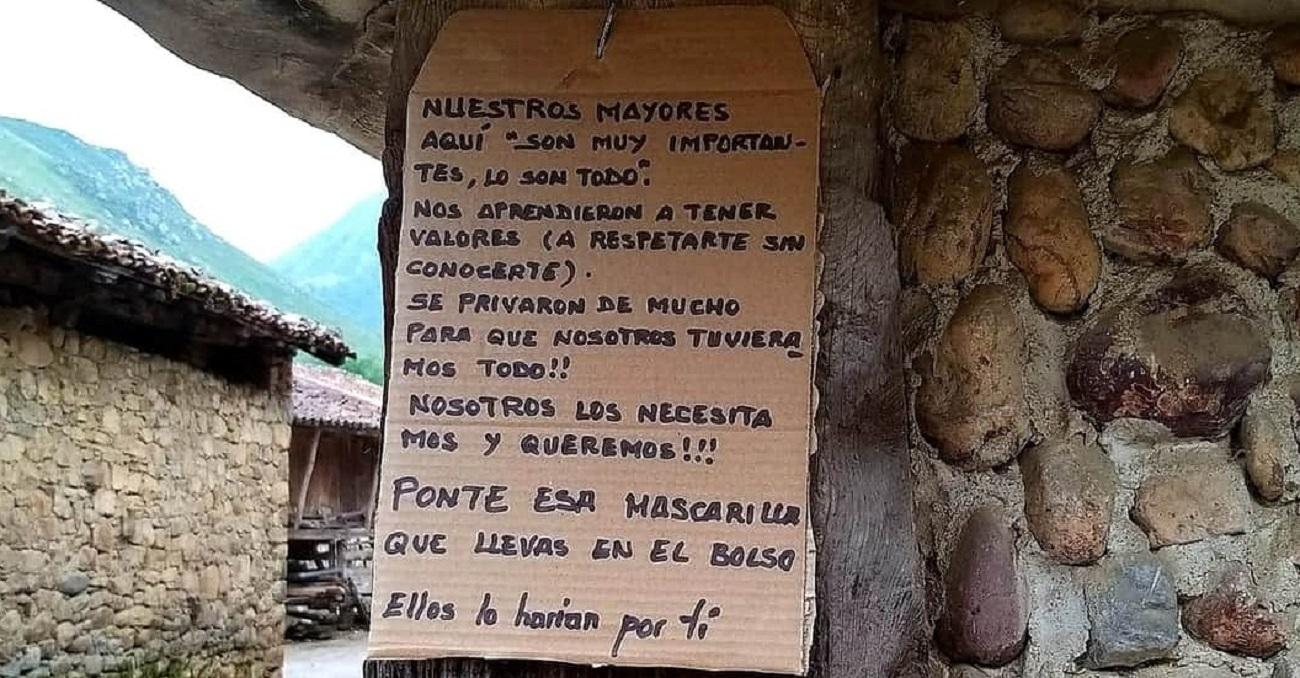 NUESTROS MAYORES
AQUÍ "SON MUY IMPORTAN-
TES, LO SON TODO".
NOS APRENDIERON A TENER
VALORES (A RESPETARTE SIN
CONOCERTE).
SE PRIVARON DE MUCHO
PARA QUE NOSOTROS TUVIERA
MOS TODO!!
NOSOTROS LOS NECESITA
MOS Y QUEREMOS!!!
PONTE ESA MASCARILLA
QUE LLEVAS EN EL BOLSO
Ellos lo harian por ti